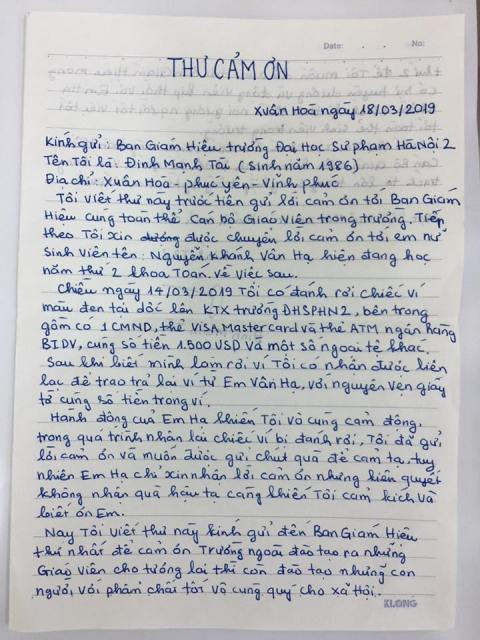 Date: . . No:
THƯ CẢM ƠN
Xuân Hoà ngày 18/03/2019
Kính gửi: Ban Giám Hiệu trường Đại Học Sư phạm Hà Nội 2
Tên Tôi là: Đinh Mạnh Tài (Sinh năm 1986)
Địa chỉ: Xuân Hoà - phúc yên - Vĩnh phúc
Tôi viết thư này trước tiên gửi lời cảm ơn tới Ban Giám
Hiệu cùng toàn thể Cán bộ Giáo Viên trong trường. Tiếp
theo Tôi xin được chuyển lời cảm ơn tới em nữ
Sinh viên tên: Nguyễn Khánh Vân Hạ hiện đang học
năm thứ 2 khoa Toán. về việc sau.
Chiều ngày 14/03/2019 Tôi có đánh rơi chiếc ví
màu đen tại dốc lên KTX trường ĐHSPHN2, bên trong
gồm có 1 CMND, thẻ VISA, Mastercard và thẻ ATM ngân hàng
BIDV, cùng số tiền 1.500 USD và một số ngoại tệ khác.
Sau khi biết mình làm rơi ví Tôi có nhận được liên
lạc để trao trả lại ví từ Em Vân Hạ, với nguyên vẹn giấy
tờ cùng số tiền trong ví.
Hành động của Em Hạ khiến Tôi vô cùng cảm động,
trong quá trình nhận lại chiếc ví bị đánh rơi, Tôi đã gửi
lời cảm ơn và muốn được gửi chút quà để cảm tạ, tuy
nhiên Em Hạ chỉ xin nhận lời cảm ơn nhưng kiên quyết
không nhận quà hậu tạ càng khiến Tôi cảm kích và
biết ơn Em.
Nay Tôi viết thư này kính gửi đến Ban Giám Hiệu
thứ nhất để cảm ơn Trường ngoài đào tạo ra những
Giáo Viên cho tương lai thì còn đào tạo những con
người, với phẩm chất tốt vô cùng quý cho xã hội.
KLONG